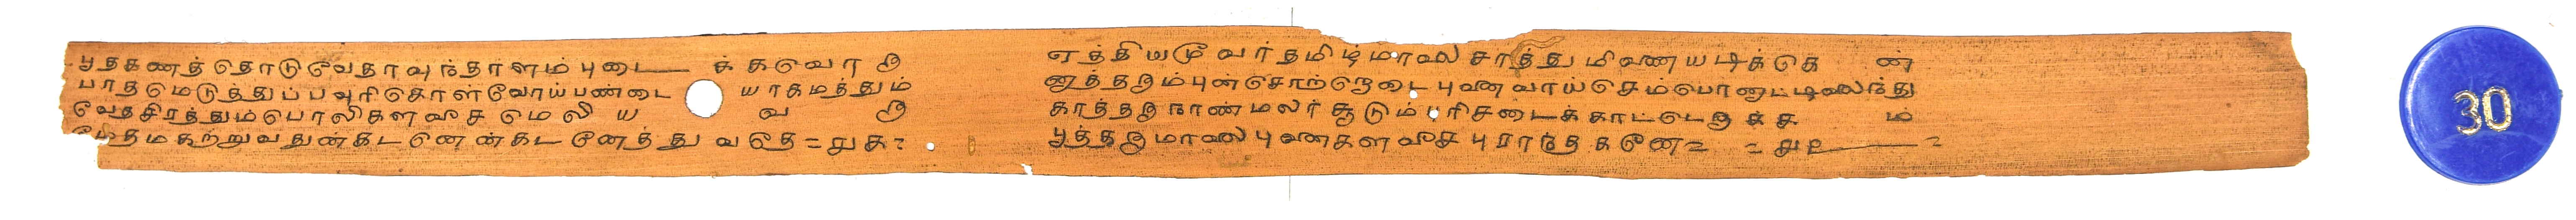 பூதகணத தொடுவேதாவுநதாளம புடை க ககவொரு
பாதமெடுத்துப்பவுரிகொள்வோய்பண்டை யாகமத்தும்
வேதசிரத்தும்பொலிகளவீச மெலிய வ ரு
மேதமகற்றுவதுன்கடனென்கடனேத்துவதே =
ஏத்தியமூவர்தமிழ்மாலைசாத்துமிணையடிக்கெ ன்
னுத்தரும்புன்சொற்றொடைபுனைவாய்செம்பொனுட்டிலைந்து
காத்தருநாண்மலர்சூடும்பரிசடைக்காட்டெருக்க ம்
பூத்தருமாலைபுனைகளவீசபுராந்தகனே =
30